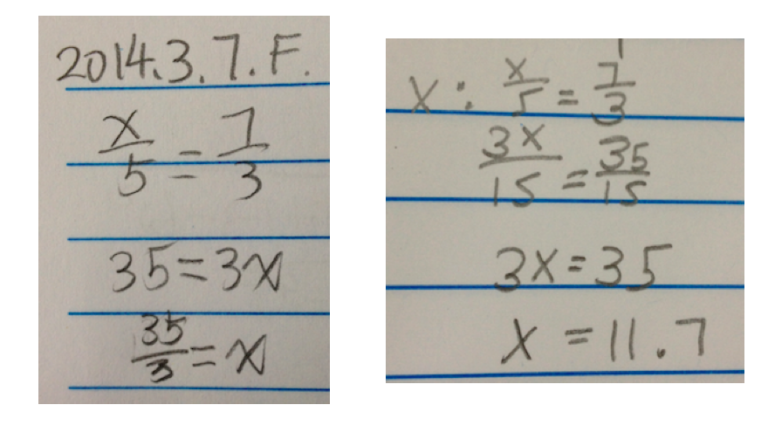 2014.3.7.F.
x/5 = 7/3
35=3x
35/3 = x
x: x/5 = 7/3
3x/15 = 35/15
3x=35
x =11.7